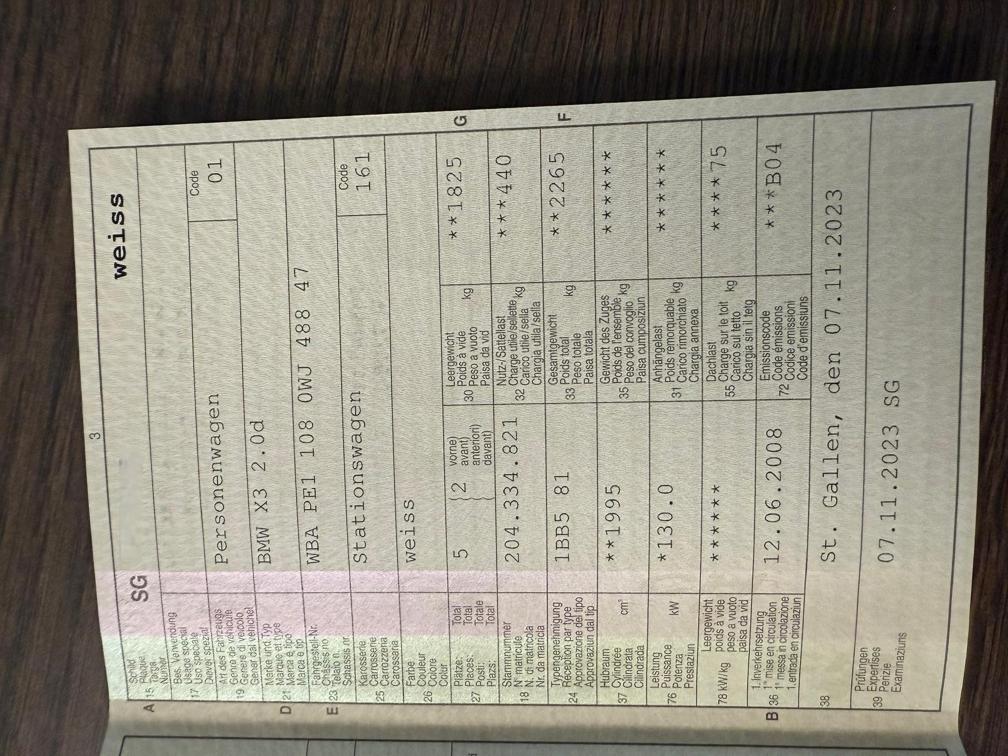 3
A 15 Schild
Plaque
Targa
Numer
SG
weiss
17 Bes. Verwendung
Usage spécial
Uso speciale
Diever spezial
19 Art des Fahrzeugs
Genre de véhicule
Genere di veicolo
Gener dal vehichel
Personenwagen
Code
01
D 21 Marke und Typ
Marque et type
Marca e tipo
Marca e tip
BMW X3 2.0d
E 23 Fahrgestell-Nr.
Châssis no
Telaio n.
Schassis nr.
WBA PE1 108 0WJ 488 47
25 Karosserie
Carrosserie
Carrozzeria
Carossaria
Stationswagen
Code
161
26 Farbe
Couleur
Colore
Colur
weiss
27 Plätze: Total
Places: Total
Posti: Totale
Plazs: Total
5 {2 vorne)
avant)
anteriori)
davant)
30 Leergewicht
Poids à vide
Peso a vuoto
Paisa da vid
kg
**1825
G
18 Stammnummer
N° matricule
N. di matricola
Nr. da matricla
204.334.821
32 Nutz-/Sattellast
Charge utile/sellette
Carico utile/sella
Chargia utila/sella
kg
***440
24 Typengenehmigung
Réception par type
Approvazione del tipo
Approvaziun dal tip
1BB5 81
33 Gesamtgewicht
Poids total
Peso totale
Paisa totala
kg
**2265
F
37 Hubraum
Cylindrée
Cilindrata
Cilindrada
cm³
**1995
35 Gewicht des Zuges
Poids de l'ensemble
Peso del convoglio
Paisa cumposiziun
kg
*******
76 Leistung
Puissance
Potenza
Prestaziun
kW
*130.0
31 Anhängelast
Poids remorquable
Carico rimorchiato
Chargia annexa
kg
*******
78 kW/kg Leergewicht
poids à vide
peso a vuoto
paisa da vid
******
55 Dachlast
Charge sur le toit
Carico sul tetto
Chargia sin il tetg
kg
*****75
B 36 1. Inverkehrsetzung
1re mise en circulation
1a messa in circolazione
1. entrada en circulaziun
12.06.2008
72 Emissionscode
Code émissions
Codice emissioni
Code d'emissiuns
***B04
38
St. Gallen, den 07.11.2023
39 Prüfungen
Expertises
Perizie
Examinaziuns
07.11.2023 SG